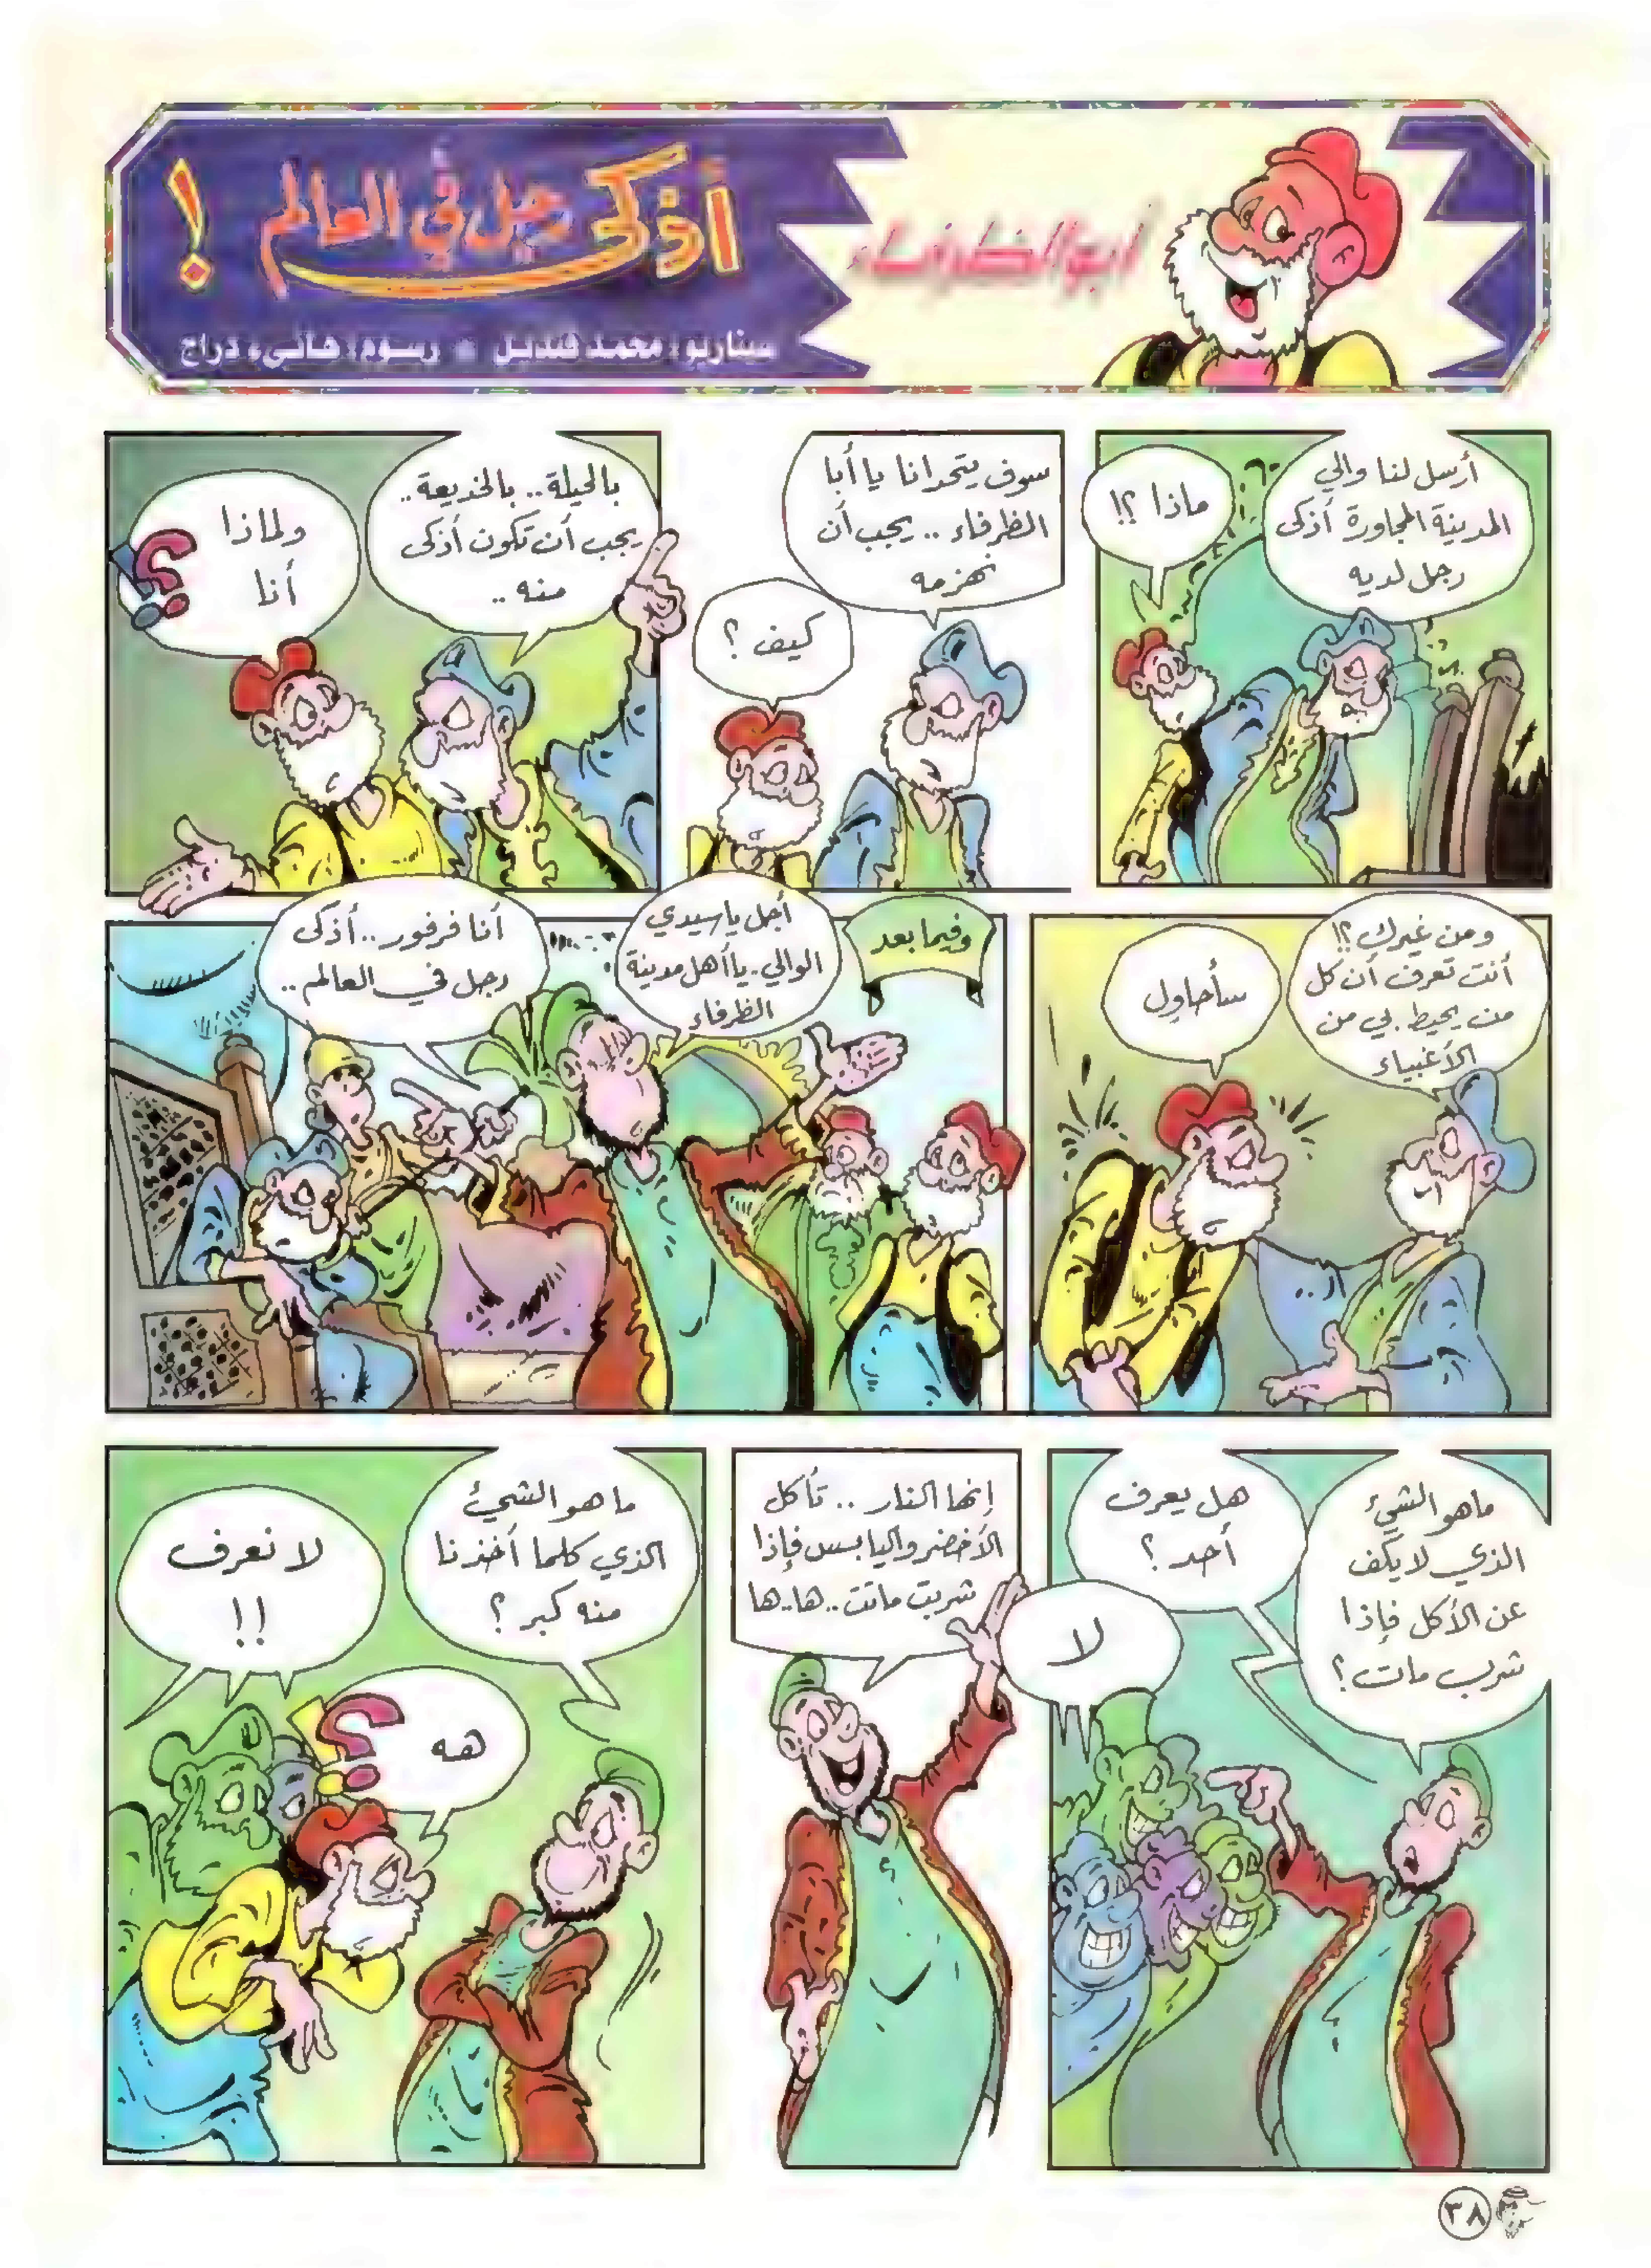 أبو الظرفاء
أذكى رجل في العالم !
سيناريو: محمد قنديل • رسوم: هانىء دراج
أرسل لنا والي
المدينة المجاورة أذكى
رجل لديه
ماذا ؟!
سوف يتحدانا يا أبا
الظرفاء .. يجب أن
نهزمه
كيف ؟
بالحيلة .. بالخديعة ..
يجب أن تكون أذكى
منه ..
ولماذا
أنا
؟!
ومن غيرك ؟!
أنت تعرف أن كل
من يحيط بي من
الأغبياء
سأحاول
وفيما بعد
أجل يا سيدي
الوالي .. يا أهل مدينة
الظرفاء
أنا فرفور .. أذكى
رجل في العالم ..
ما هو الشيء
الذي لا يكف
عن الأكل فإذا
شرب مات ؟
هل يعرف
أحد ؟
لا
إنها النار .. تأكل
الأخضر واليابس فإذا
شربت ماتت .. ها .. ها
ما هو الشيئ
الذي كلما أخذنا
منه كبر ؟
لا نعرف
!!
هه
؟!
٣٨